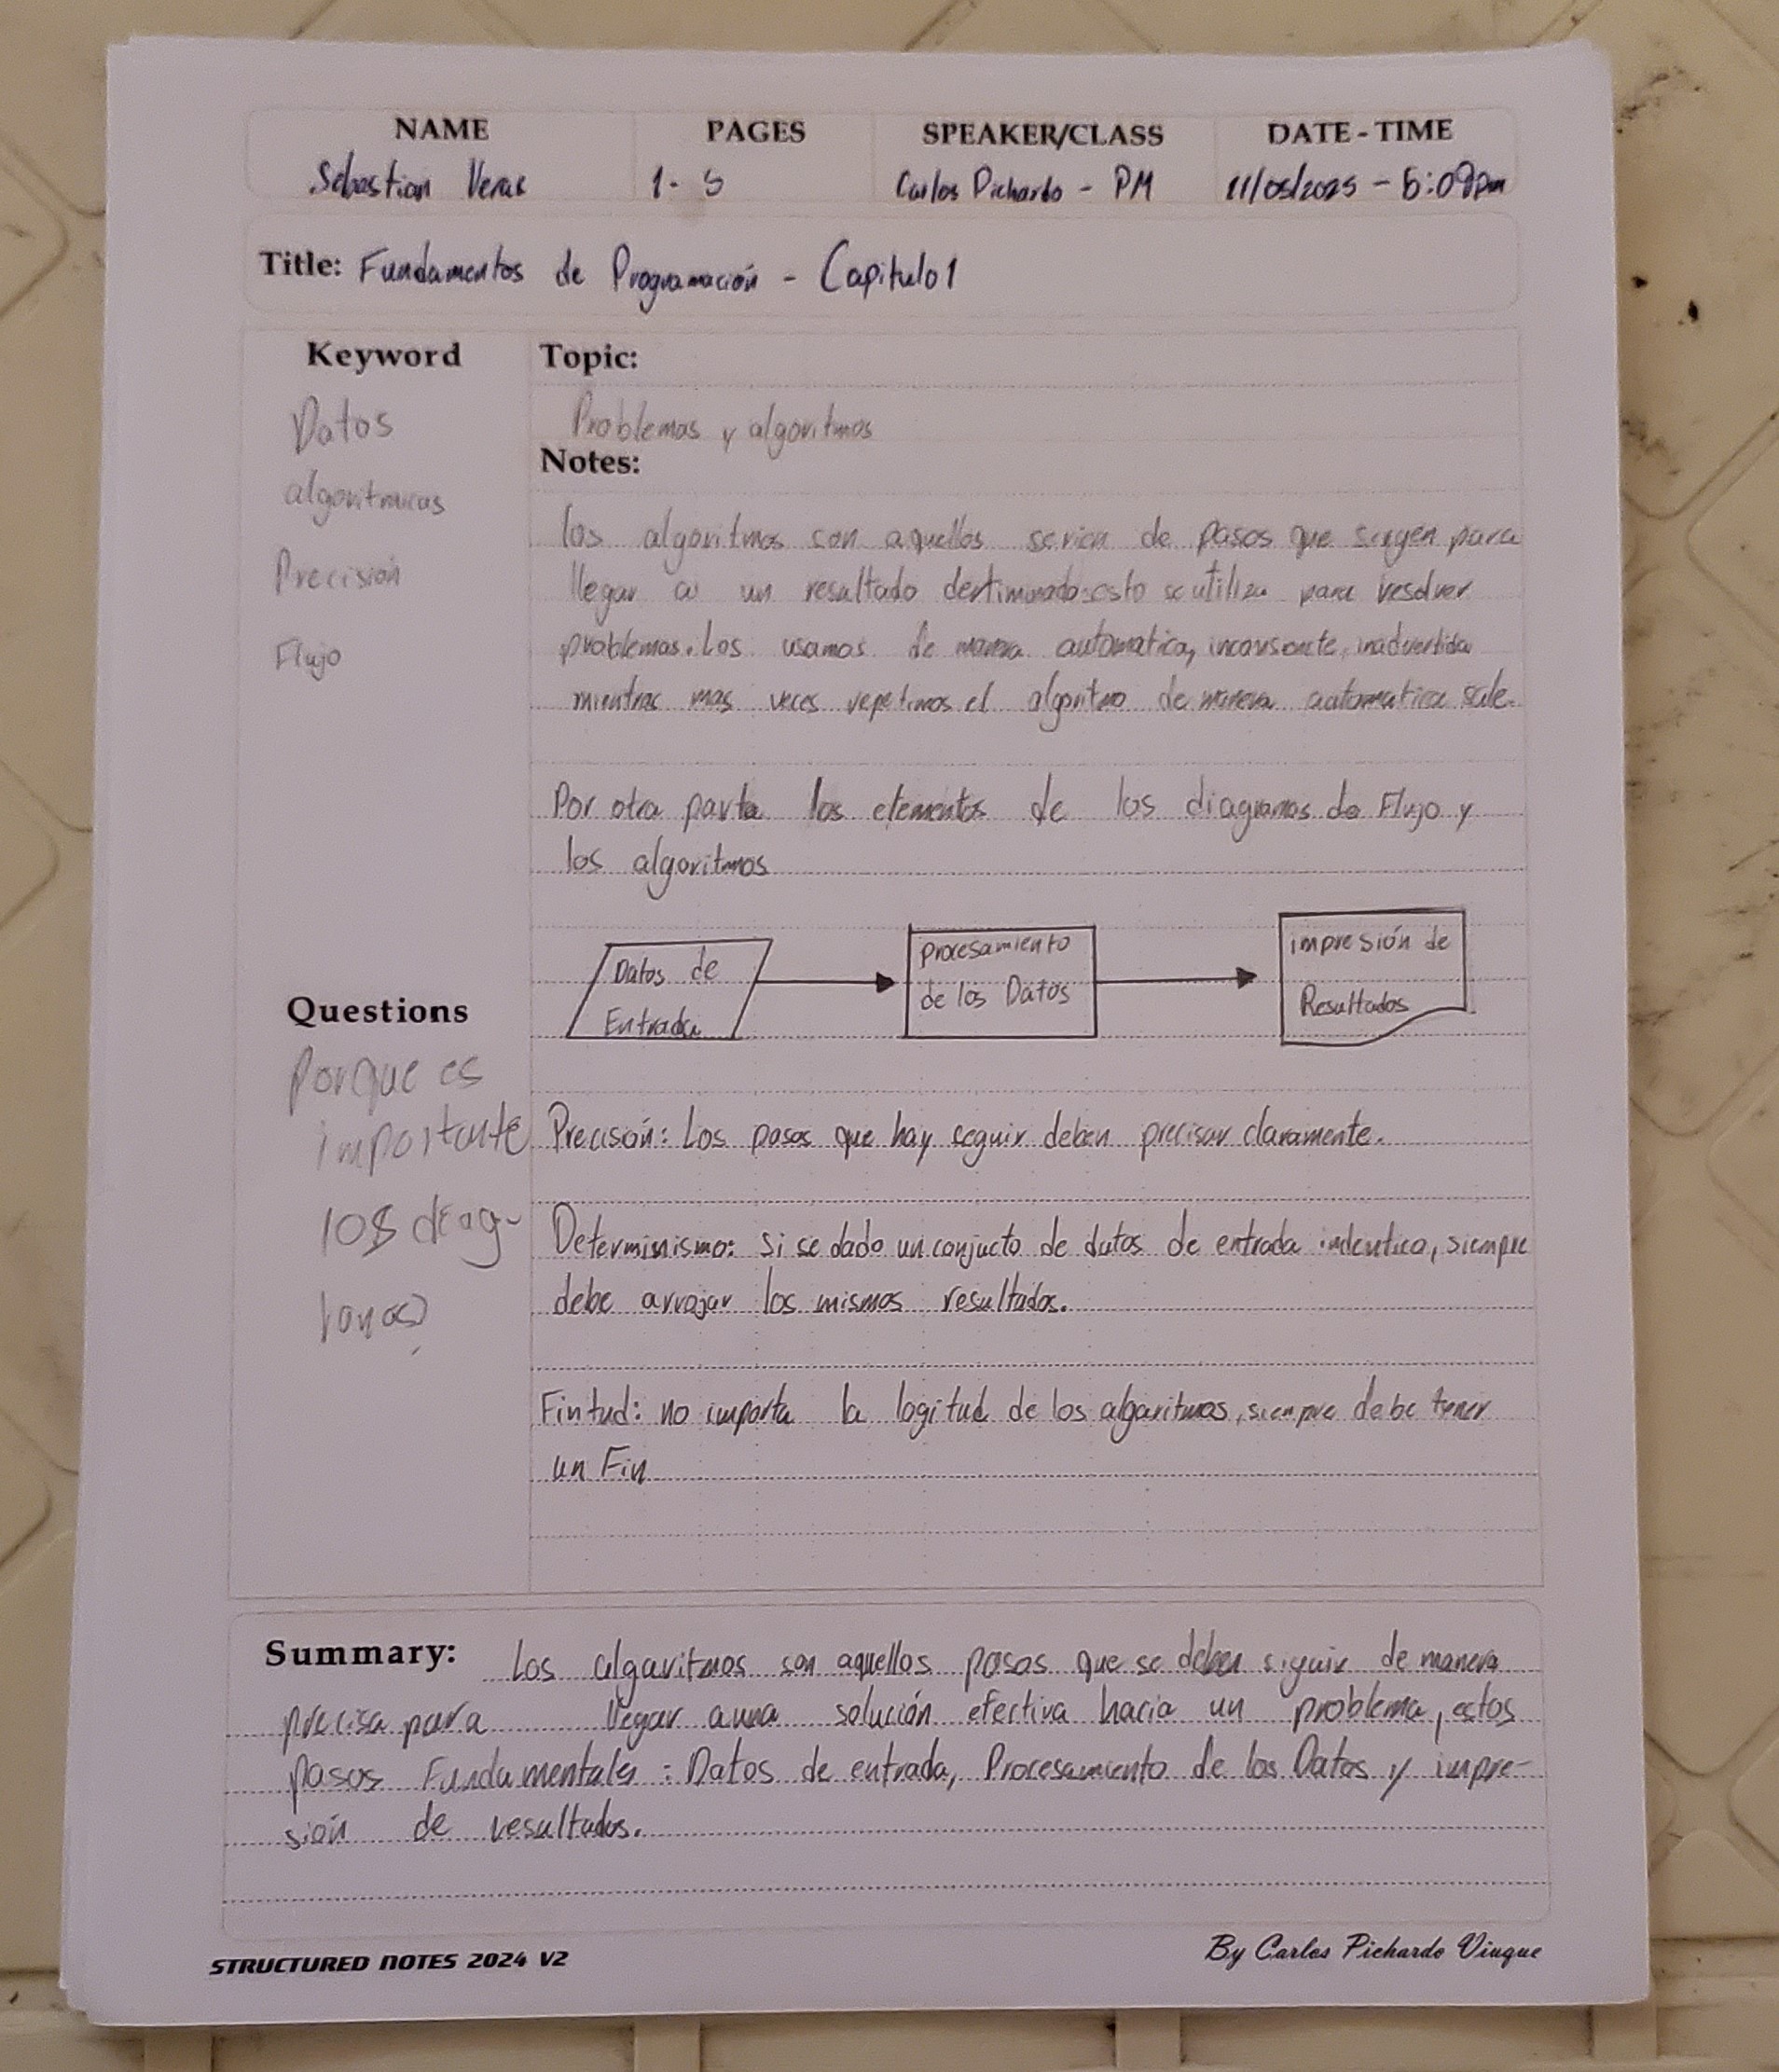 NAME PAGES SPEAKER/CLASS DATE - TIME
Sebastian Veras 1- 5 Carlos Pichardo - PM 11/05/2025 - 6:09pm
Title: Fundamentos de Programación - Capitulo 1
Keyword
Datos
algoritmicas
Precisión
Flujo
Topic:
Problemas y algoritmos
Notes:
los algoritmos son aquellos serien de pasos que siegen para
llegar a un resultado dertiminado esto se utiliza para resolver
problemas. Los usamos de manera automatica, inconsiencte, inadvertida
mientras mas veces repetimos el algoritmo de manera automatica sale.
Por otra parte los elementos de los diagramas de Flujo y
los algoritmos
Datos de
Entrada
procesamiento
de los Datos
impresión de
Resultados
Questions
Porque es
importante
los diag-
ramas?
Precisón: Los pasos que hay seguir deben precisar claramente.
Determinismo: Si se dado un conjucto de datos de entrada indentico, siempre
debe arrojar los mismos resultados.
Fintud: no importa la logitud de los algoritmos, siempre debe tener
un Fin
Summary: Los algoritmos son aquellos pasos que se deben siguir de manera
precisa para llegar a una solución efectiva hacia un problema, estos
pasos Fundamentales: Datos de entrada, Procesamiento de los Datos y impre-
sión de resultados.
STRUCTURED NOTES 2024 V2
By Carlos Pichardo Viuque